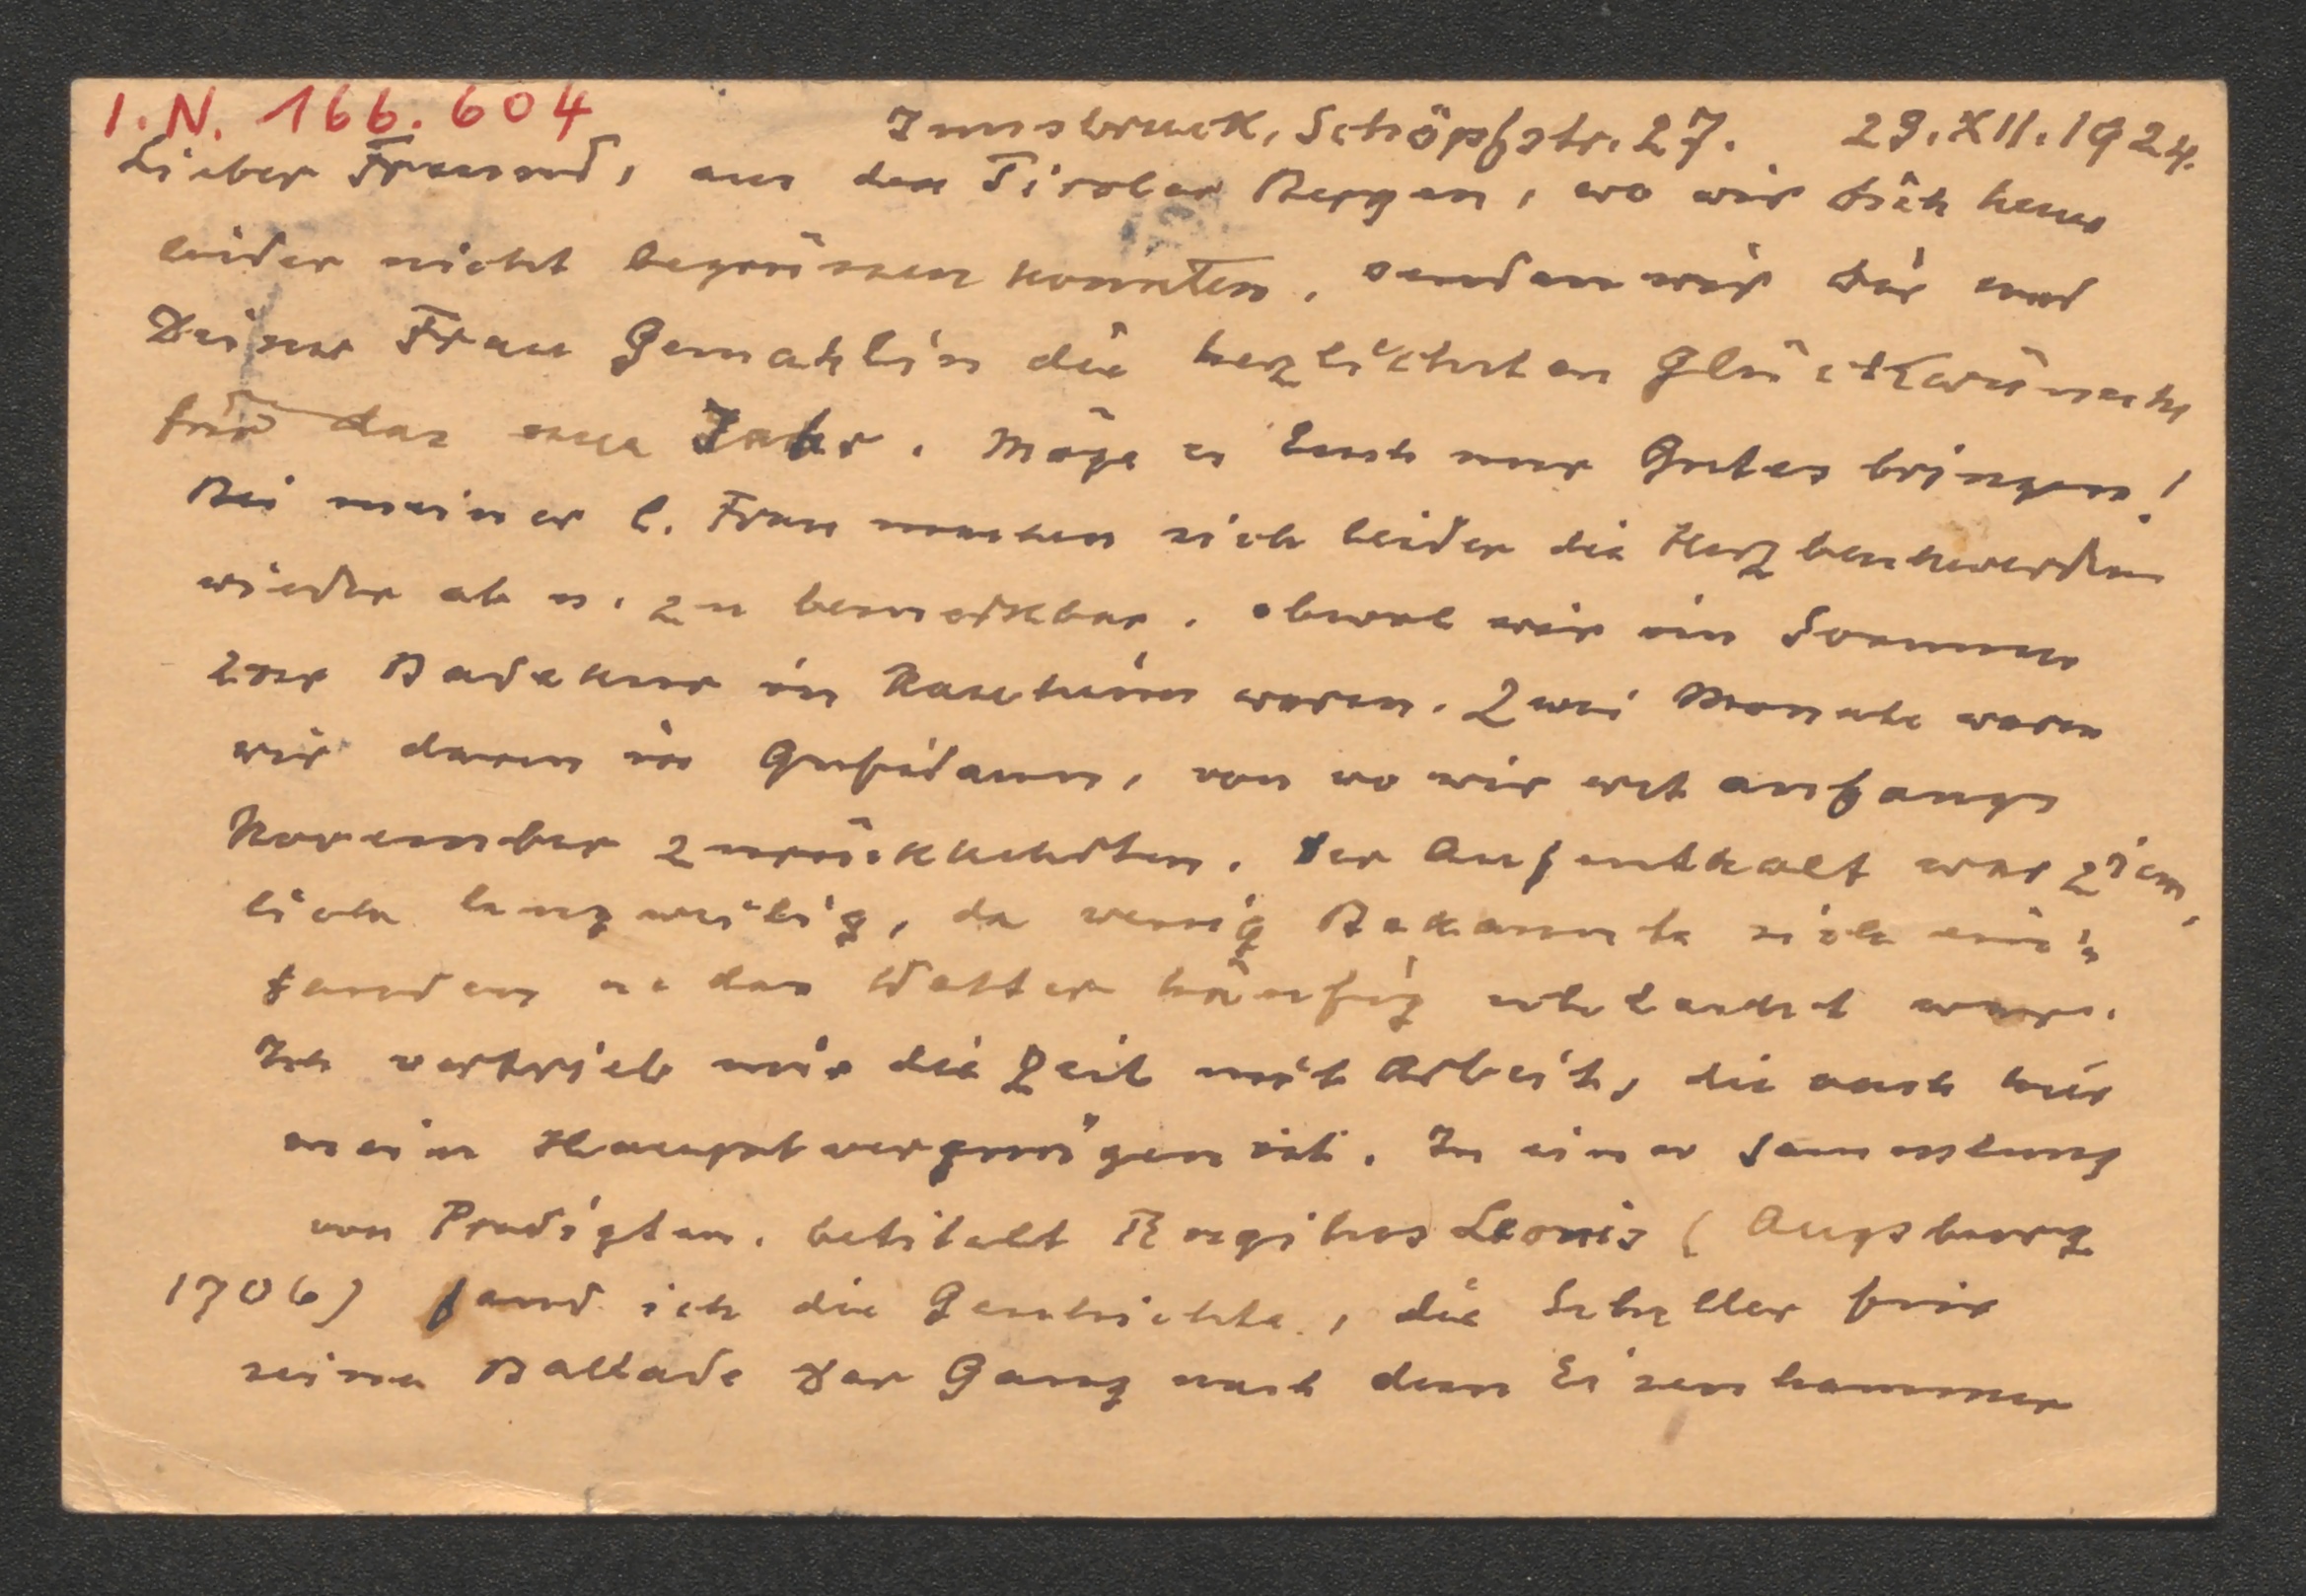 I.N. 166.604
Innsbruck, Schöpfstr. 27. 29.XII.1924.
Lieber Freund, aus den Tiroler Bergen, wo wir Dich heuer
leider nicht begrüssen konnten, senden wir Dir und
Deiner Frau Gemahlin die herzlichsten Glückwünsche
für das neue Jahr. Möge es Euch nur Gutes bringen!
Bei meiner l. Frau machen sich leider die Herzbeschwerden
wieder ab u. zu bemerkbar, obwol wir im Sommer
zur Badekur in waren. Zwei Monate waren
wir dann in Gufidaun, von wo wir erst anfangs
November zurückkehrten. Der Aufenthalt war ziem-
lich langweilig, da wenig Bekannte sich ein-
fanden u. das Wetter häufig schlecht war.
Ich vertrieb mir die Zeit mit Arbeit, die auch hier
mein Hauptvergnügen ist. In einer Sammlung
von Predigten, betitelt Rugitus Leonis (Augsburg
1706) fand ich die Geschichte, die Schiller für
seine Ballade Der Gang nach dem Eisenhammer